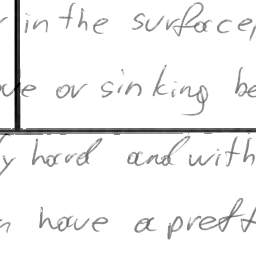 in the surface,
ove or sinking be
y hard and with
n have a prett